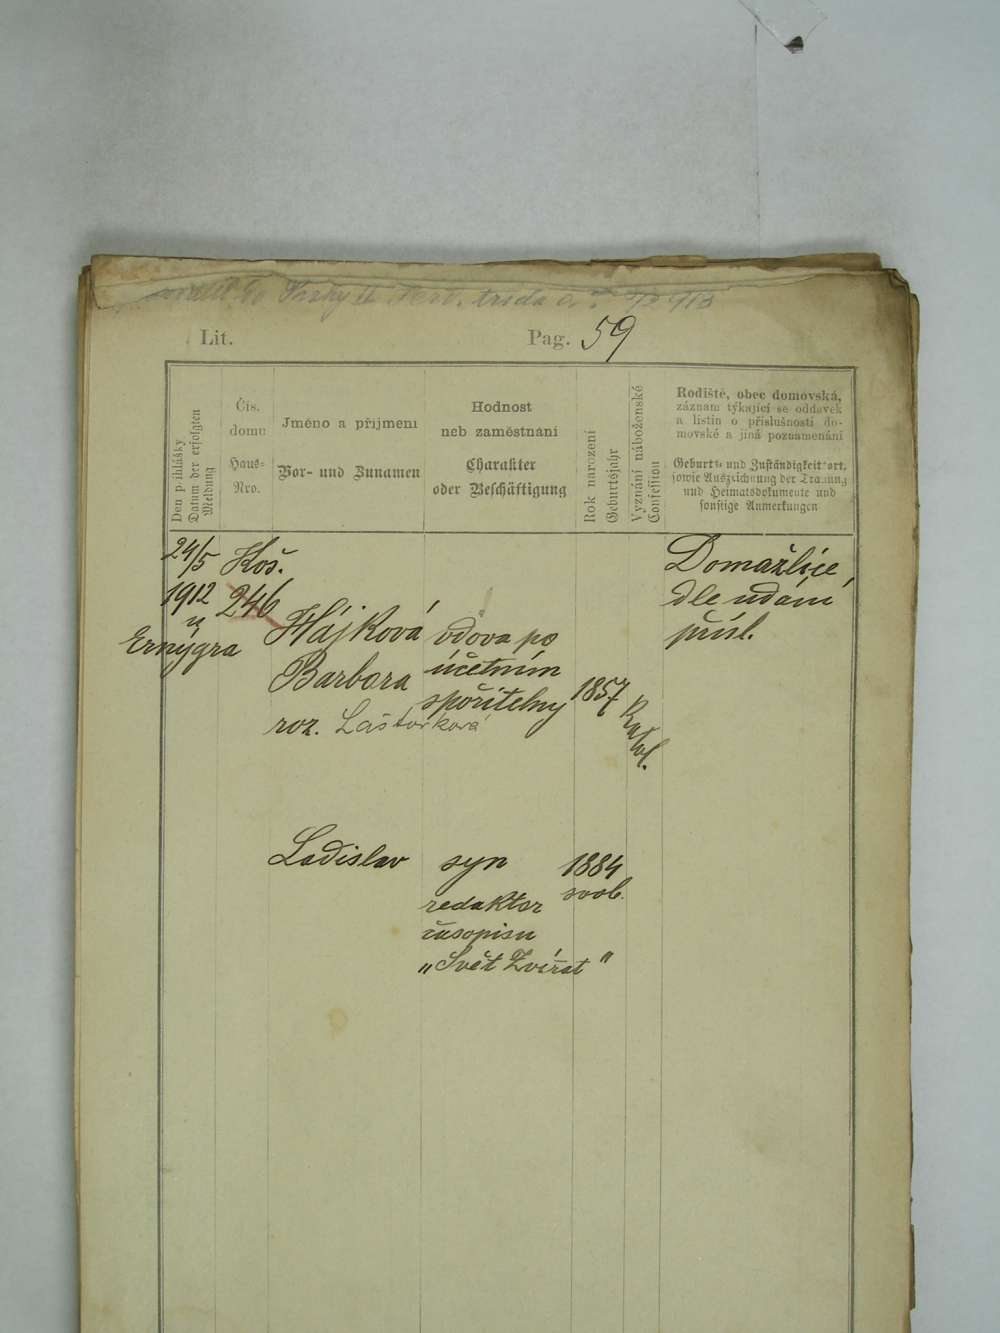 Prahy II Ferd. třída
Lit.
Pag. 59
Den přihlášky
Datum der erfolgten
Meldung
Čís.
domu
Haus-
Nro.
Jméno a příjmení
Vor- und Zunamen
Hodnost
neb zaměstnání
Charakter
oder Beschäftigung
Rok narození
Geburtsjahr
Vyznání náboženské
Confession
Rodiště, obec domovská,
záznam týkající se oddavek
a listin o příslušnosti do-
movské a jiná poznamenání
Geburts- und Zuständigkeitsort,
sowie Auszeichnung der Trauung
und Heimatsdokumente und
sonstige Anmerkungen
24/5
1912
u
Ernýgra
Koš.
246
Hájková
Barbora
roz. Laštovková
vdova po
účetním
spořitelny
1857
Kathol.
Domažlice,
dle udání
přísl.
Ladislav
syn
redaktor
časopisu
„Svět Zvířat"
1884
svob.